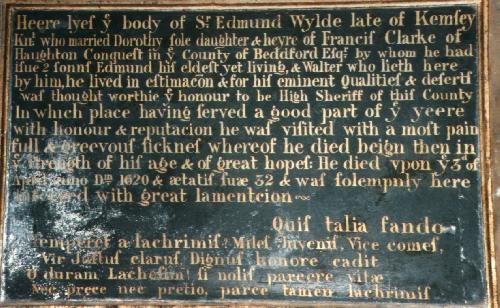 Heere lyes ẙ body of Sr. Edmund Wylde late of Kemsey
Knt. who married Dorothy sole daughter & heyre of Francis Clarke of
Haughton Conquest in ẙ County of Beddford Esqr. by whom he had
issue 2 sonns Edmund his eldest yet living, & Walter who lieth here
by him, he lived in estimacõn & for his eminent Qualities & deserts
was thought worthie ẙ honour to be High Sheriff of this County
In which place having served a good part of ẙ yeere
with honour & reputacion he was visited with a most painfull
full & greevous sicknes whereof he died beign then in
ẙ strength of his age & of great hopes: He died vpon ẙ 3d of
Anno Dni 1620 & ætatis suæ 32 & was solempnly here
interred with great lamentcion
Quis talia fando
Temperet a lachrimis? Miles, Juvenis, Vice comes,
Vir Justus clarus, Dignus honore cadit
O duram Lachesim! si nolis parcere vitæ
Nec prece nec pretio, parce tamen lachrimis